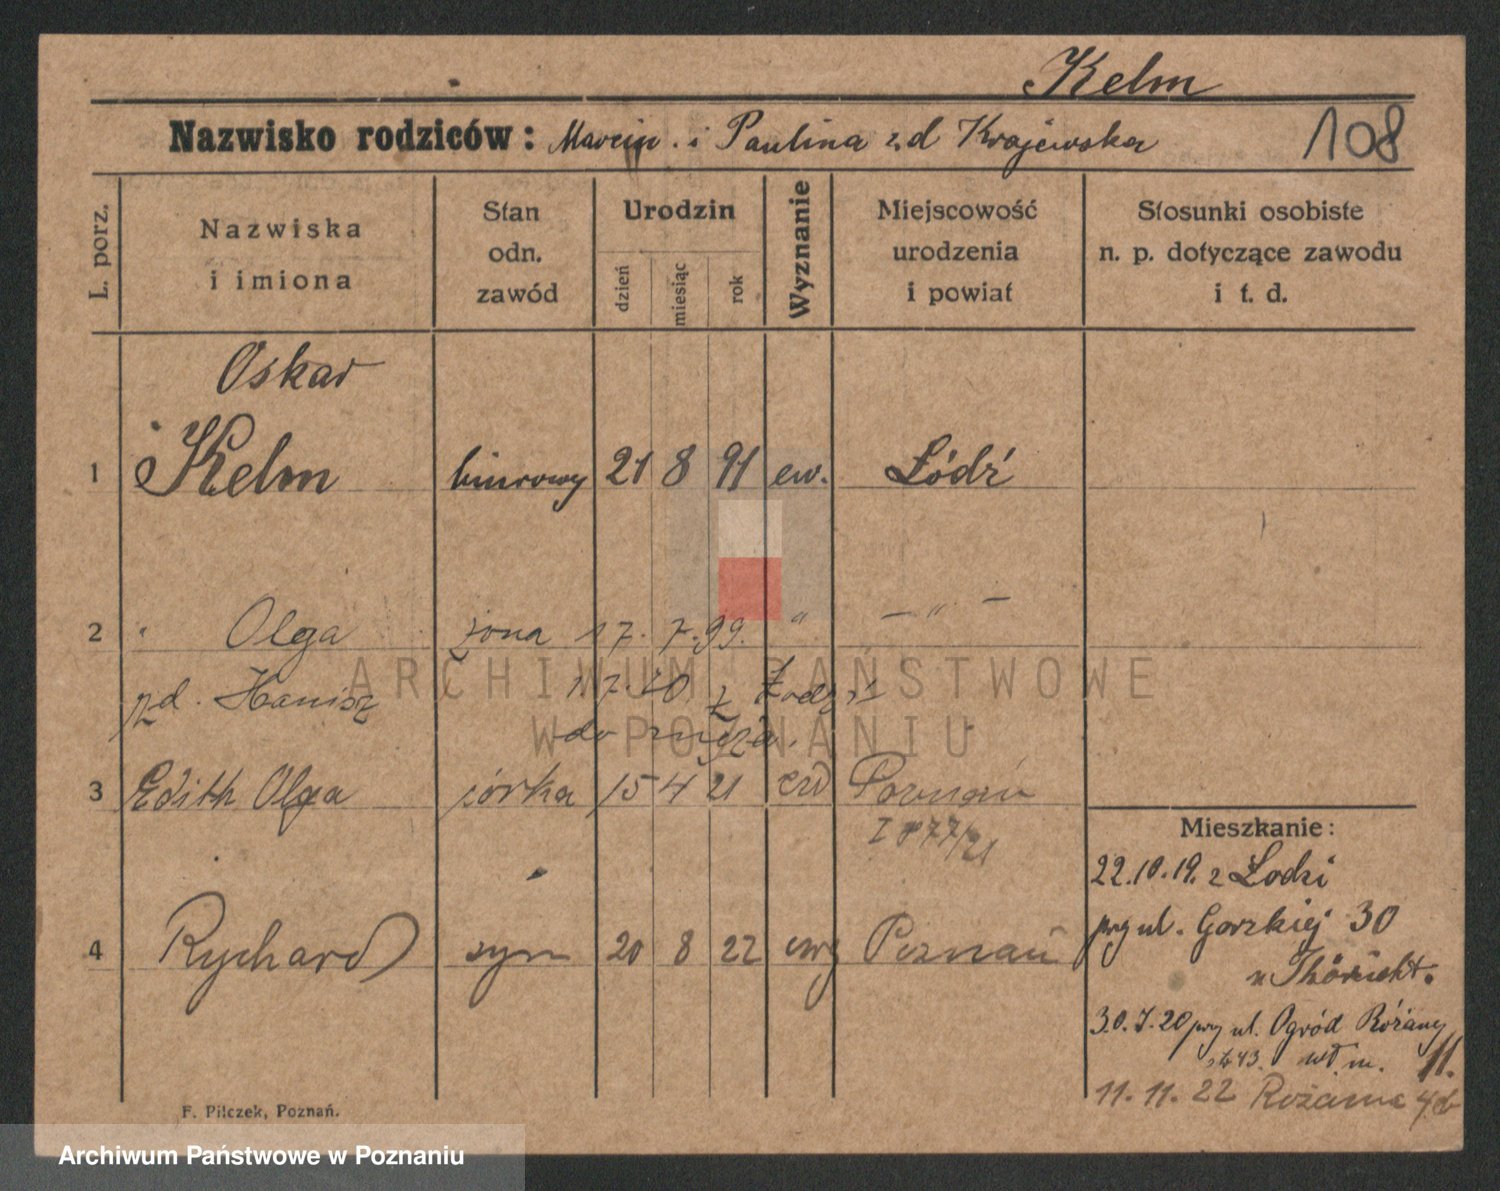 Kelm
Nazwisko rodziców: Marcin i Paulina z d Krajewska
108
L. porz.
Nazwiska
i imiona
Stan
odn.
zawód
Urodzin
dzień
miesiąc
rok
Wyznanie
Miejscowość
urodzenia
i powiat
Stosunki osobiste
n. p. dotyczące zawodu
i t. d.
Oskar
1 Kelm biurowy 21 8 91 ew. Łódź
2 " Olga żona 17. 7. 99. " — " —
zd. Hanisz 17.20 z Łodzi
do męża.
3 Edith Olga córka 15 4 21 ew Poznań
I 877/21
4 Rychard syn 20 8 22 ewg Poznań
Mieszkanie:
22.10.19. z Łodzi
przy ul. Gorzkiej 30
u
30.7.20 przy ul. Ogród Różany
43. wł. m. 11.
11. 11. 22 Różana 4b
F. Pilczek, Poznań.
ARCHIWUM PAŃSTWOWE
W POZNANIU
Archiwum Państwowe w Poznaniu